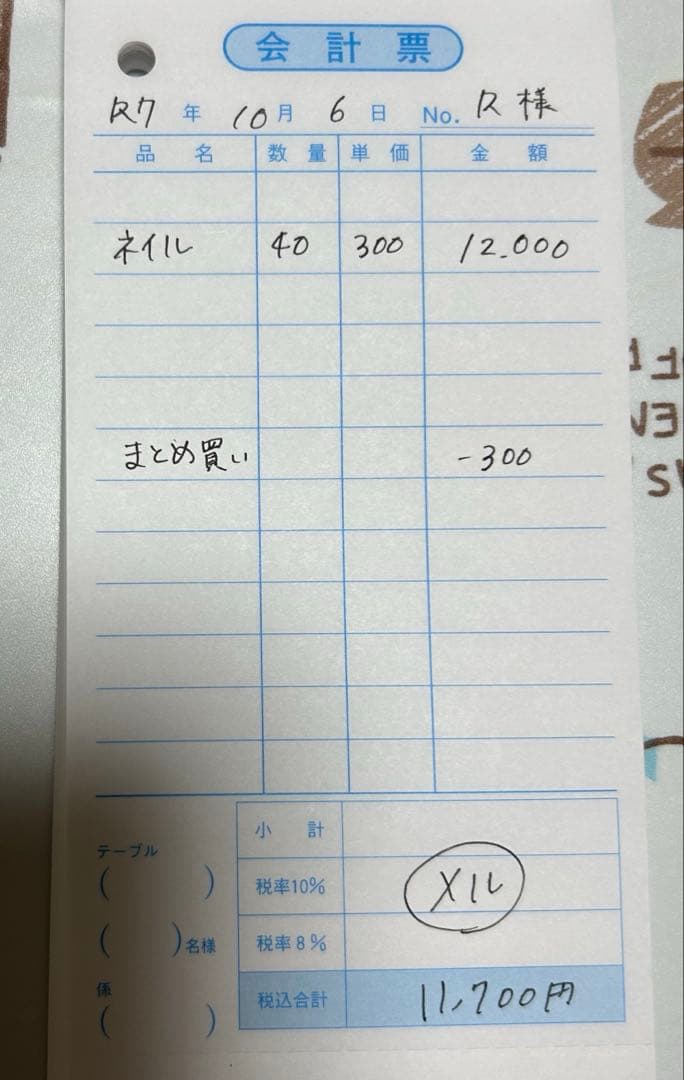 会計票
R7年 10月 6日 No. R様
品名 数量 単価 金額
ネイル 40 300 12.000
まとめ買い -300
小計
テーブル
( )
税率10% メル
( )名様
税率8%
係
( )
税込合計 11,700円